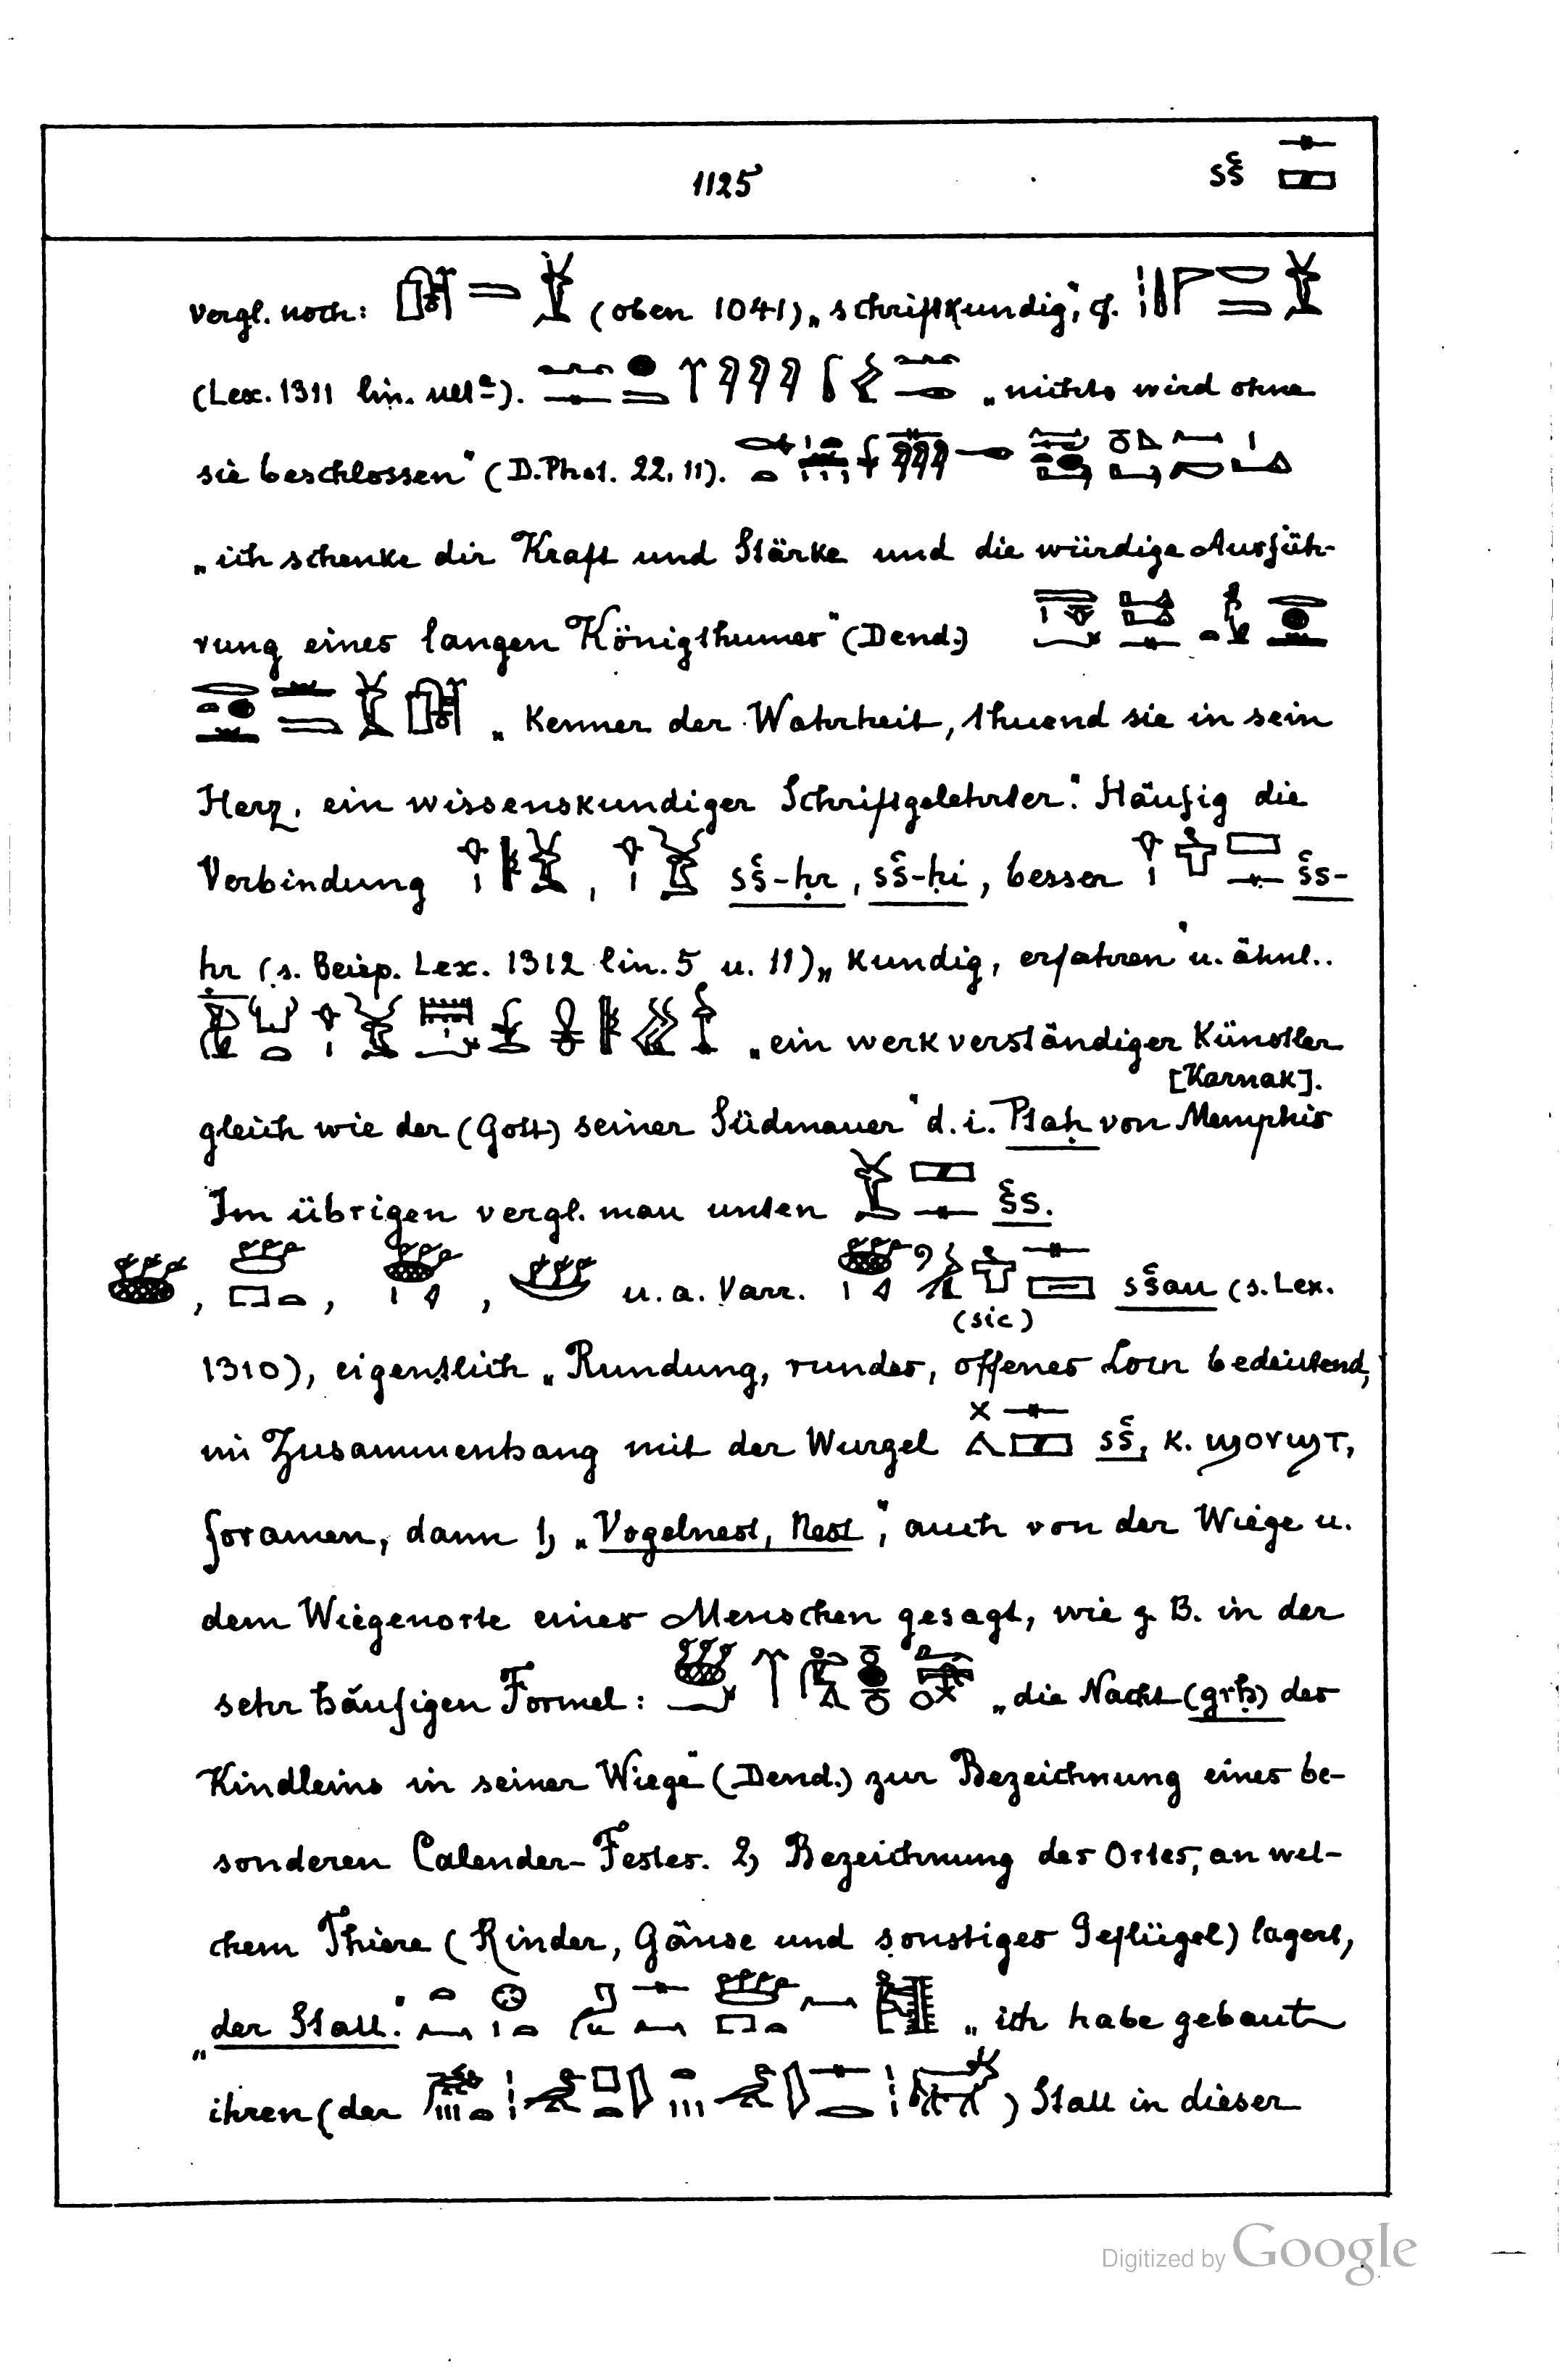 1125 sš
vergl. noch: (oben 1041) „schriftkundig“, cf.
(Lex. 1311 lin. ult.). „nichts wird ohne
sie beschlossen“ (D. Phot. 22, 11).
„ich schenke dir Kraft und Stärke und die würdige Ausfüh-
rung eines langen Königthumes“ (Dend.)
„Kenner der Wahrheit, thuend sie in sein
Herz, ein wissenskundiger Schriftgelehrter“. Häufig die
Verbindung , sš-ḥr, sš-ḥi, besser šs-
ḥr (s. Beisp. Lex. 1312 lin. 5 u. 11) „kundig, erfahren“ u. ähnl..
„ein werkverständiger Künstler
[Karnak].
gleich wie der (Gott) seiner Südmauer“ d. i. Ptaḥ von Memphis
Im übrigen vergl. man unten šs.
, , , u. a. Varr. sšau (s. Lex.
(sic)
1310), eigentlich „Rundung, rundes, offenes Loch bedeutend,
im Zusammenhang mit der Wurzel sš, K. ϣⲟⲩϣⲧ,
foramen, dann 1, „Vogelnest, Nest“, auch von der Wiege u.
dem Wiegenorte eines Menschen gesagt, wie z. B. in der
sehr häufigen Formel: „die Nacht (grḥ) des
Kindleins in seiner Wiege“ (Dend.) zur Bezeichnung eines be-
sonderen Calender-Festes. 2, Bezeichnung des Ortes, an wel-
chem Thiere (Rinder, Gänse und sonstiges Geflügel) lagert,
„der Stall“. „ich habe gebaut
ihren (der ) Stall in dieser
Digitized by Google